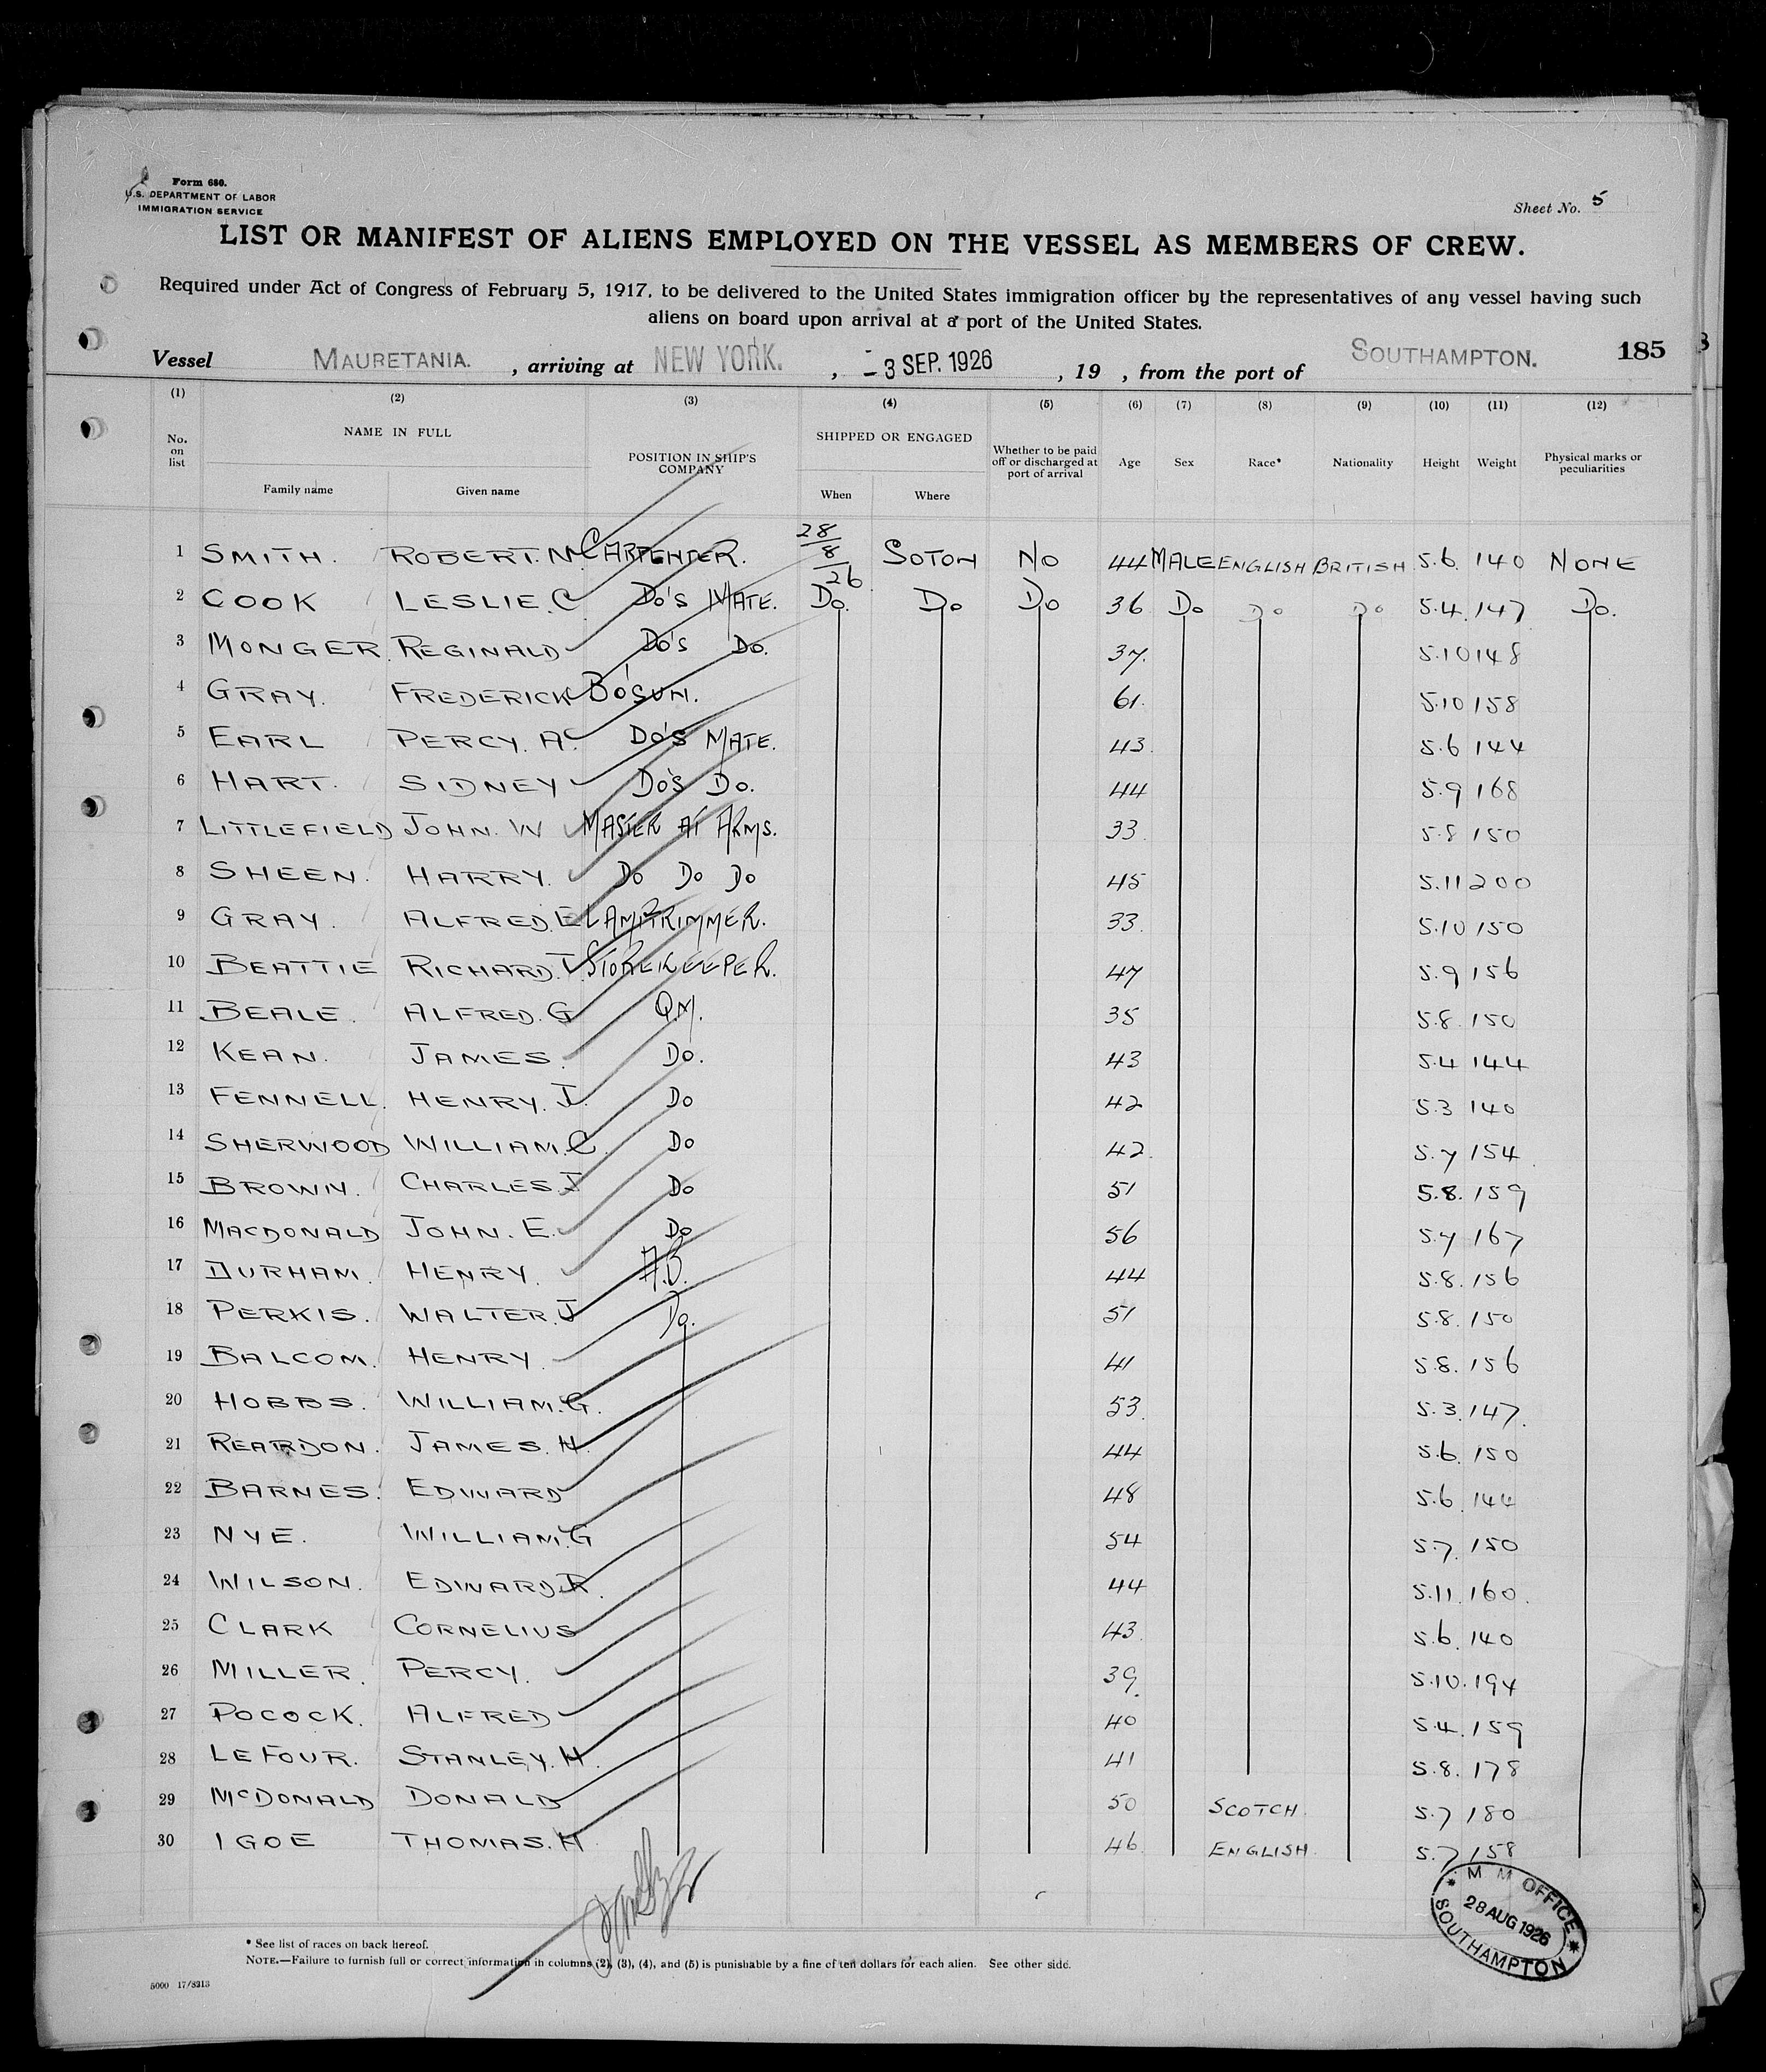 Form 680.
U.S. DEPARTMENT OF LABOR
IMMIGRATION SERVICE
Sheet No. 5
LIST OR MANIFEST OF ALIENS EMPLOYED ON THE VESSEL AS MEMBERS OF CREW.
Required under Act of Congress of February 5, 1917, to be delivered to the United States immigration officer by the representatives of any vessel having such
aliens on board upon arrival at a port of the United States.
Vessel MAURETANIA. , arriving at NEW YORK. , - 3 SEP. 1926 , 19 , from the port of SOUTHAMPTON. 185
(1) (2) (3) (4) (5) (6) (7) (8) (9) (10) (11) (12)
No. on list NAME IN FULL Family name Given name POSITION IN SHIP'S COMPANY SHIPPED OR ENGAGED When Where Whether to be paid off or discharged at port of arrival Age Sex Race* Nationality Height Weight Physical marks or peculiarities
1 SMITH. ROBERT. N. CARPENTER. 28/8/26 SOTON NO 44 MALE ENGLISH BRITISH 5.6. 140 NONE
2 COOK LESLIE. C DO'S MATE. Do. Do Do 36 Do Do Do 5.4. 147 Do.
3 MONGER. REGINALD DO'S DO. 37. 5.10 148
4 GRAY. FREDERICK BO'SUN. 61. 5.10 158
5 EARL PERCY. A. DO'S MATE. 43. 5.6 144
6 HART. SIDNEY DO'S DO. 44 5.9 168
7 LITTLEFIELD JOHN. W MASTER AT ARMS. 33. 5.8 150
8 SHEEN. HARRY. DO DO DO 45 5.11 200
9 GRAY. ALFRED. E LAMPTRIMMER. 33. 5.10 150
10 BEATTIE RICHARD. T. STOREKEEPER. 47 5.9 156
11 BEALE. ALFRED. G Q.M. 35 5.8. 150
12 KEAN. JAMES. DO. 43 5.4 144
13 FENNELL. HENRY. J. DO 42 5.3 140
14 SHERWOOD WILLIAM. C. DO 42. 5.7 154.
15 BROWN. CHARLES. J DO 51 5.8. 159
16 MACDONALD JOHN. E. DO 56 5.7 167
17 DURHAM. HENRY. A.B. 44 5.8. 156
18 PERKIS. WALTER. J Do. 51 5.8. 150
19 BALCOM. HENRY. 41 5.8. 156
20 HOBBS. WILLIAM. G. 53. 5.3. 147.
21 REARDON. JAMES. H. 44 5.6. 150
22 BARNES. EDWARD 48 5.6. 144
23 NYE. WILLIAM. G 54 5.7. 150
24 WILSON. EDWARD. R. 44 5.11. 160.
25 CLARK CORNELIUS 43. 5.6. 140
26 MILLER. PERCY. 39. 5.10. 194
27 POCOCK. ALFRED 40 5.4. 159
28 LEFOUR. STANLEY. H. 41 5.8. 178
29 McDONALD DONALD 50 SCOTCH. 5.7 180
30 IGOE THOMAS. H 46 ENGLISH. 5.7 158
M M OFFICE
28 AUG 1926
SOUTHAMPTON
* See list of races on back hereof.
NOTE.—Failure to furnish full or correct information in columns (2), (3), (4), and (5) is punishable by a fine of ten dollars for each alien. See other side.
5000 17/8213